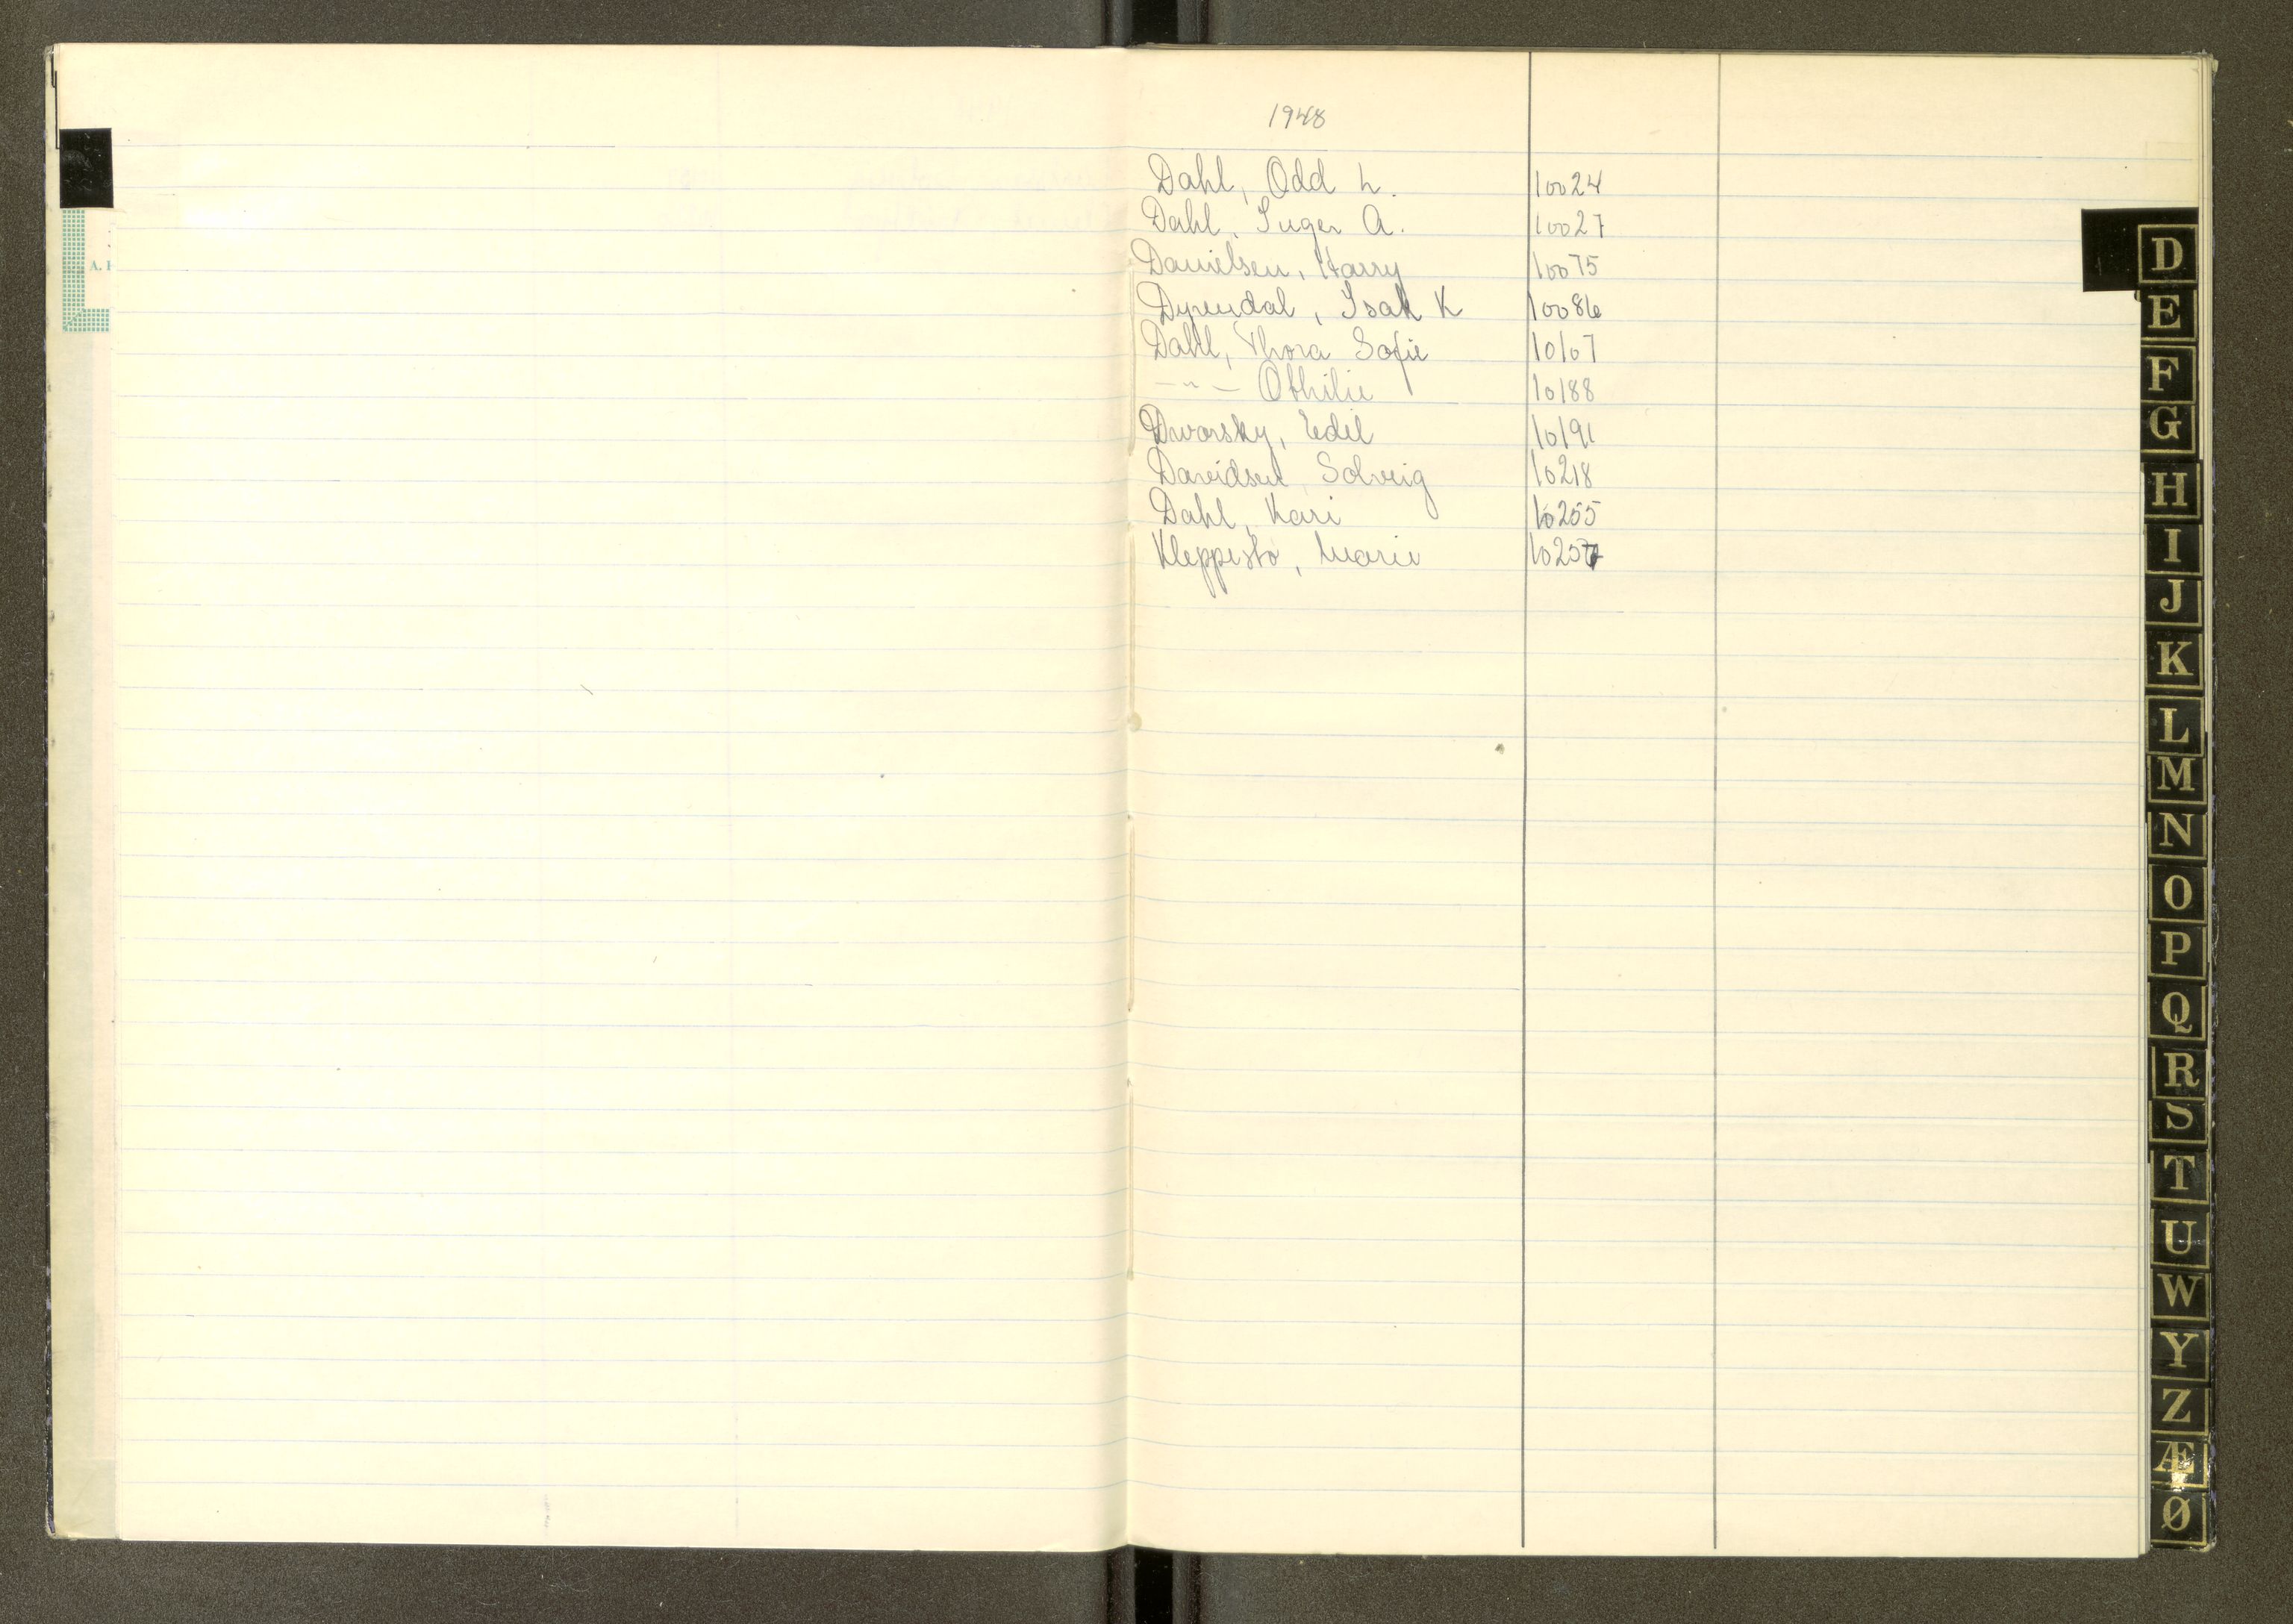 1948
Dahl, Odd L. 10024
Dahl, Inger A. 10027
Danielsen, Harry 10075
Dyrendal, Isak K 10086
Dahl, Thora Sofie 10107
— " — Othilie 10188
Dworsky, Edil 10191
Davidsen, Solveig 10218
Dahl, Kari 10255
Kleppestø, Marie 10257
A. H
D
E
F
G
H
I
J
K
L
M
N
O
P
Q
R
S
T
U
W
Y
Z
Æ
Ø